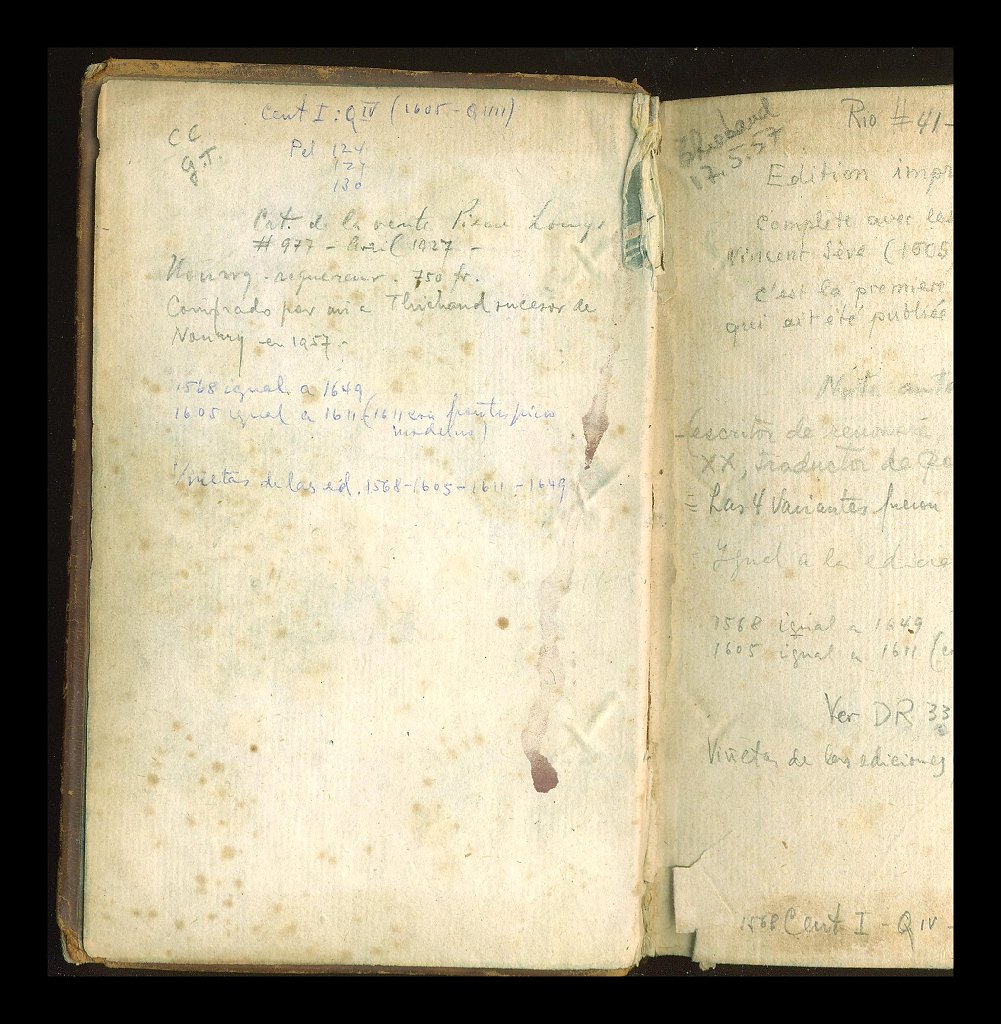 Cent I: QIV (1605 - QIIII)
CC
G.T.
Pel 124
127
130
Cat. de la vente Pierre Louys
# 977 - Avril 1927 -
Nourry - 750 fr.
Comprado por mi a Thiebaud sucesor de
Nourry en 1957.-
1568 igual a 1649
1605 igual a 1611 (1611 frontispicio
moderno)
Viñetas de las ed. 1568-1605-1611-1649
Thiebaud
17.5.57
Rio # 41-
Edition impr
complète avec les
Vincent Sève (1605
c'est la première
qui ait été publiée
Nota
-escritor de
XX, traductor de
= Las 4 Variantes fueron
Igual a la edicio
1568 igual a 1649
1605 igual a 1611 (
Ver DR 33
Viñetas de las ediciones
1568 Cent I - QIV -